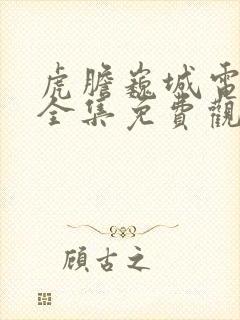 虎膽巍城電
全集免費觀
顧古之